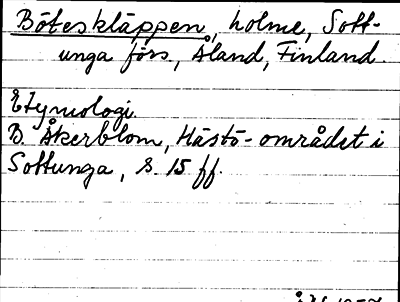 Böteskläppen, holme, Sott-
unga förs., Åland, Finland.
Etymologi
B. Åkerblom, Hästö-området i
Sottunga, s. 15 ff.